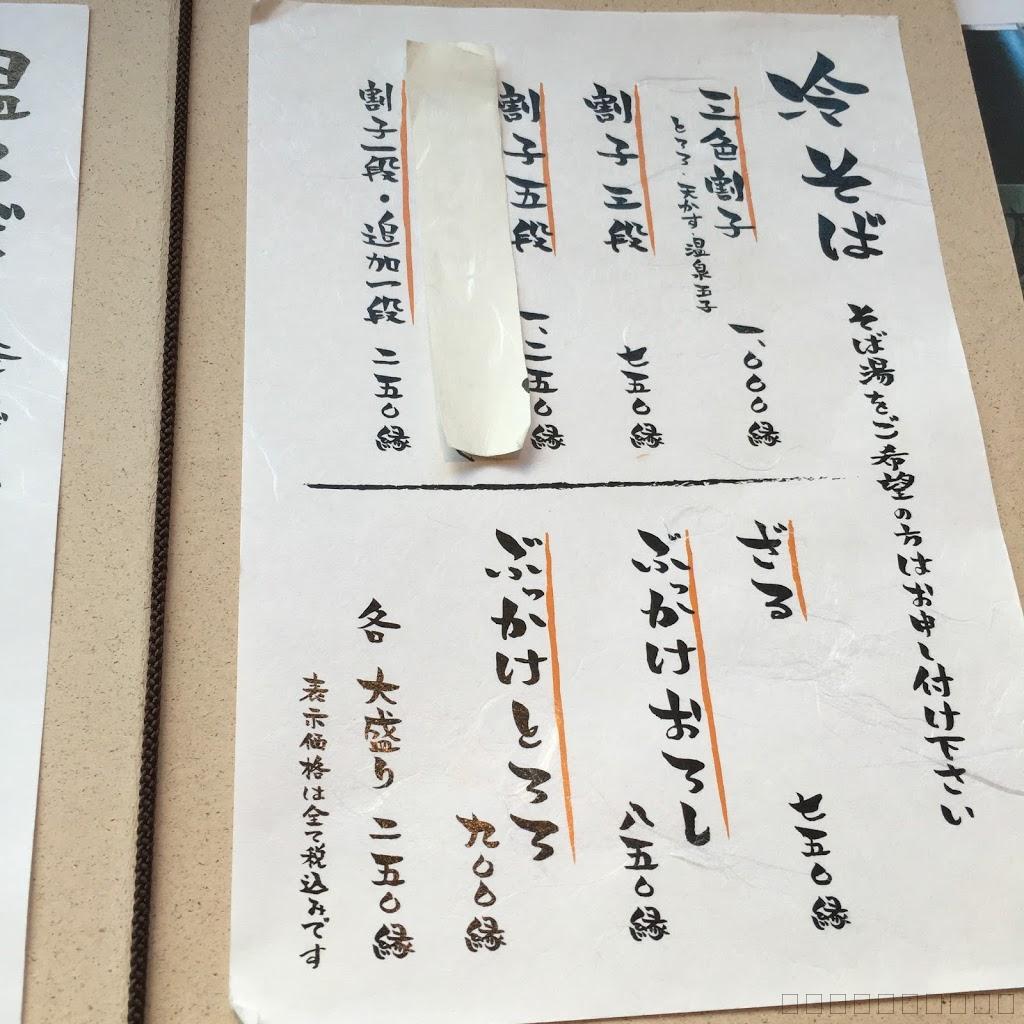 冷そば
そば湯をご希望の方はお申し付け下さい
三色割子
とろろ・天かす・温泉玉子
一、〇〇〇縁
割子三段
七五〇縁
割子五段
一、二五〇縁
割子一段・追加一段
二五〇縁
ざる
七五〇縁
ぶっかけおろし
八五〇縁
ぶっかけとろろ
九〇〇縁
各 大盛り 二五〇縁
表示価格は全て税込みです